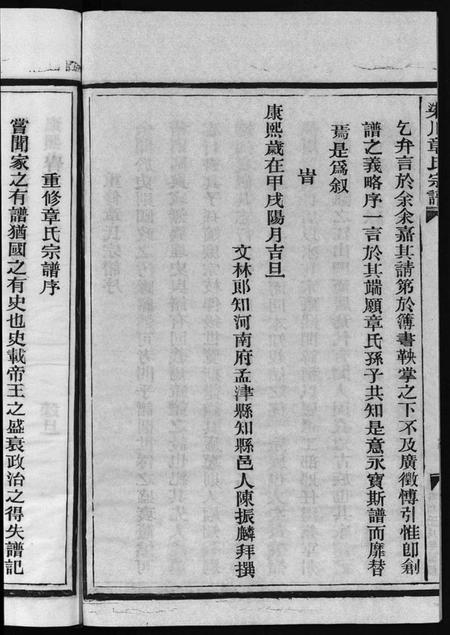 梁川章氏宗譜
乞弁言於余余嘉其請第於簿書鞅掌之下不及廣徵博引惟卽創
譜之義略序一言於其端願章氏孫子共知是意永寶斯譜而靡替
焉是爲叙
旹
康熙歲在甲戌陽月吉旦
文林郎知河南府孟津縣知縣邑人陳振麟拜撰
重修章氏宗譜序
嘗聞家之有譜猶國之有史也史載帝王之盛衰政治之得失譜記